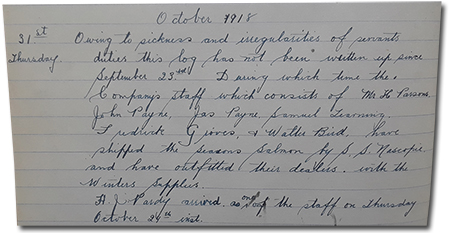 October 1918
31st Owing to sickness and irregularities of servants
Thursday. duties this log has not been written up since
September 23rd During which time the
Companys staff which consists of Mr H. Parsons,
John Payne, Jas Payne, Samuel Learning,
Fredrick Grieves, & Walter Bird, have
shipped the seasons Salmon by S. S. Nascopie.
and have outfitted their dealers. with the
Winters Supplies.
H. J. Pardy arrived as one of the staff on Thursday
October 24th inst.